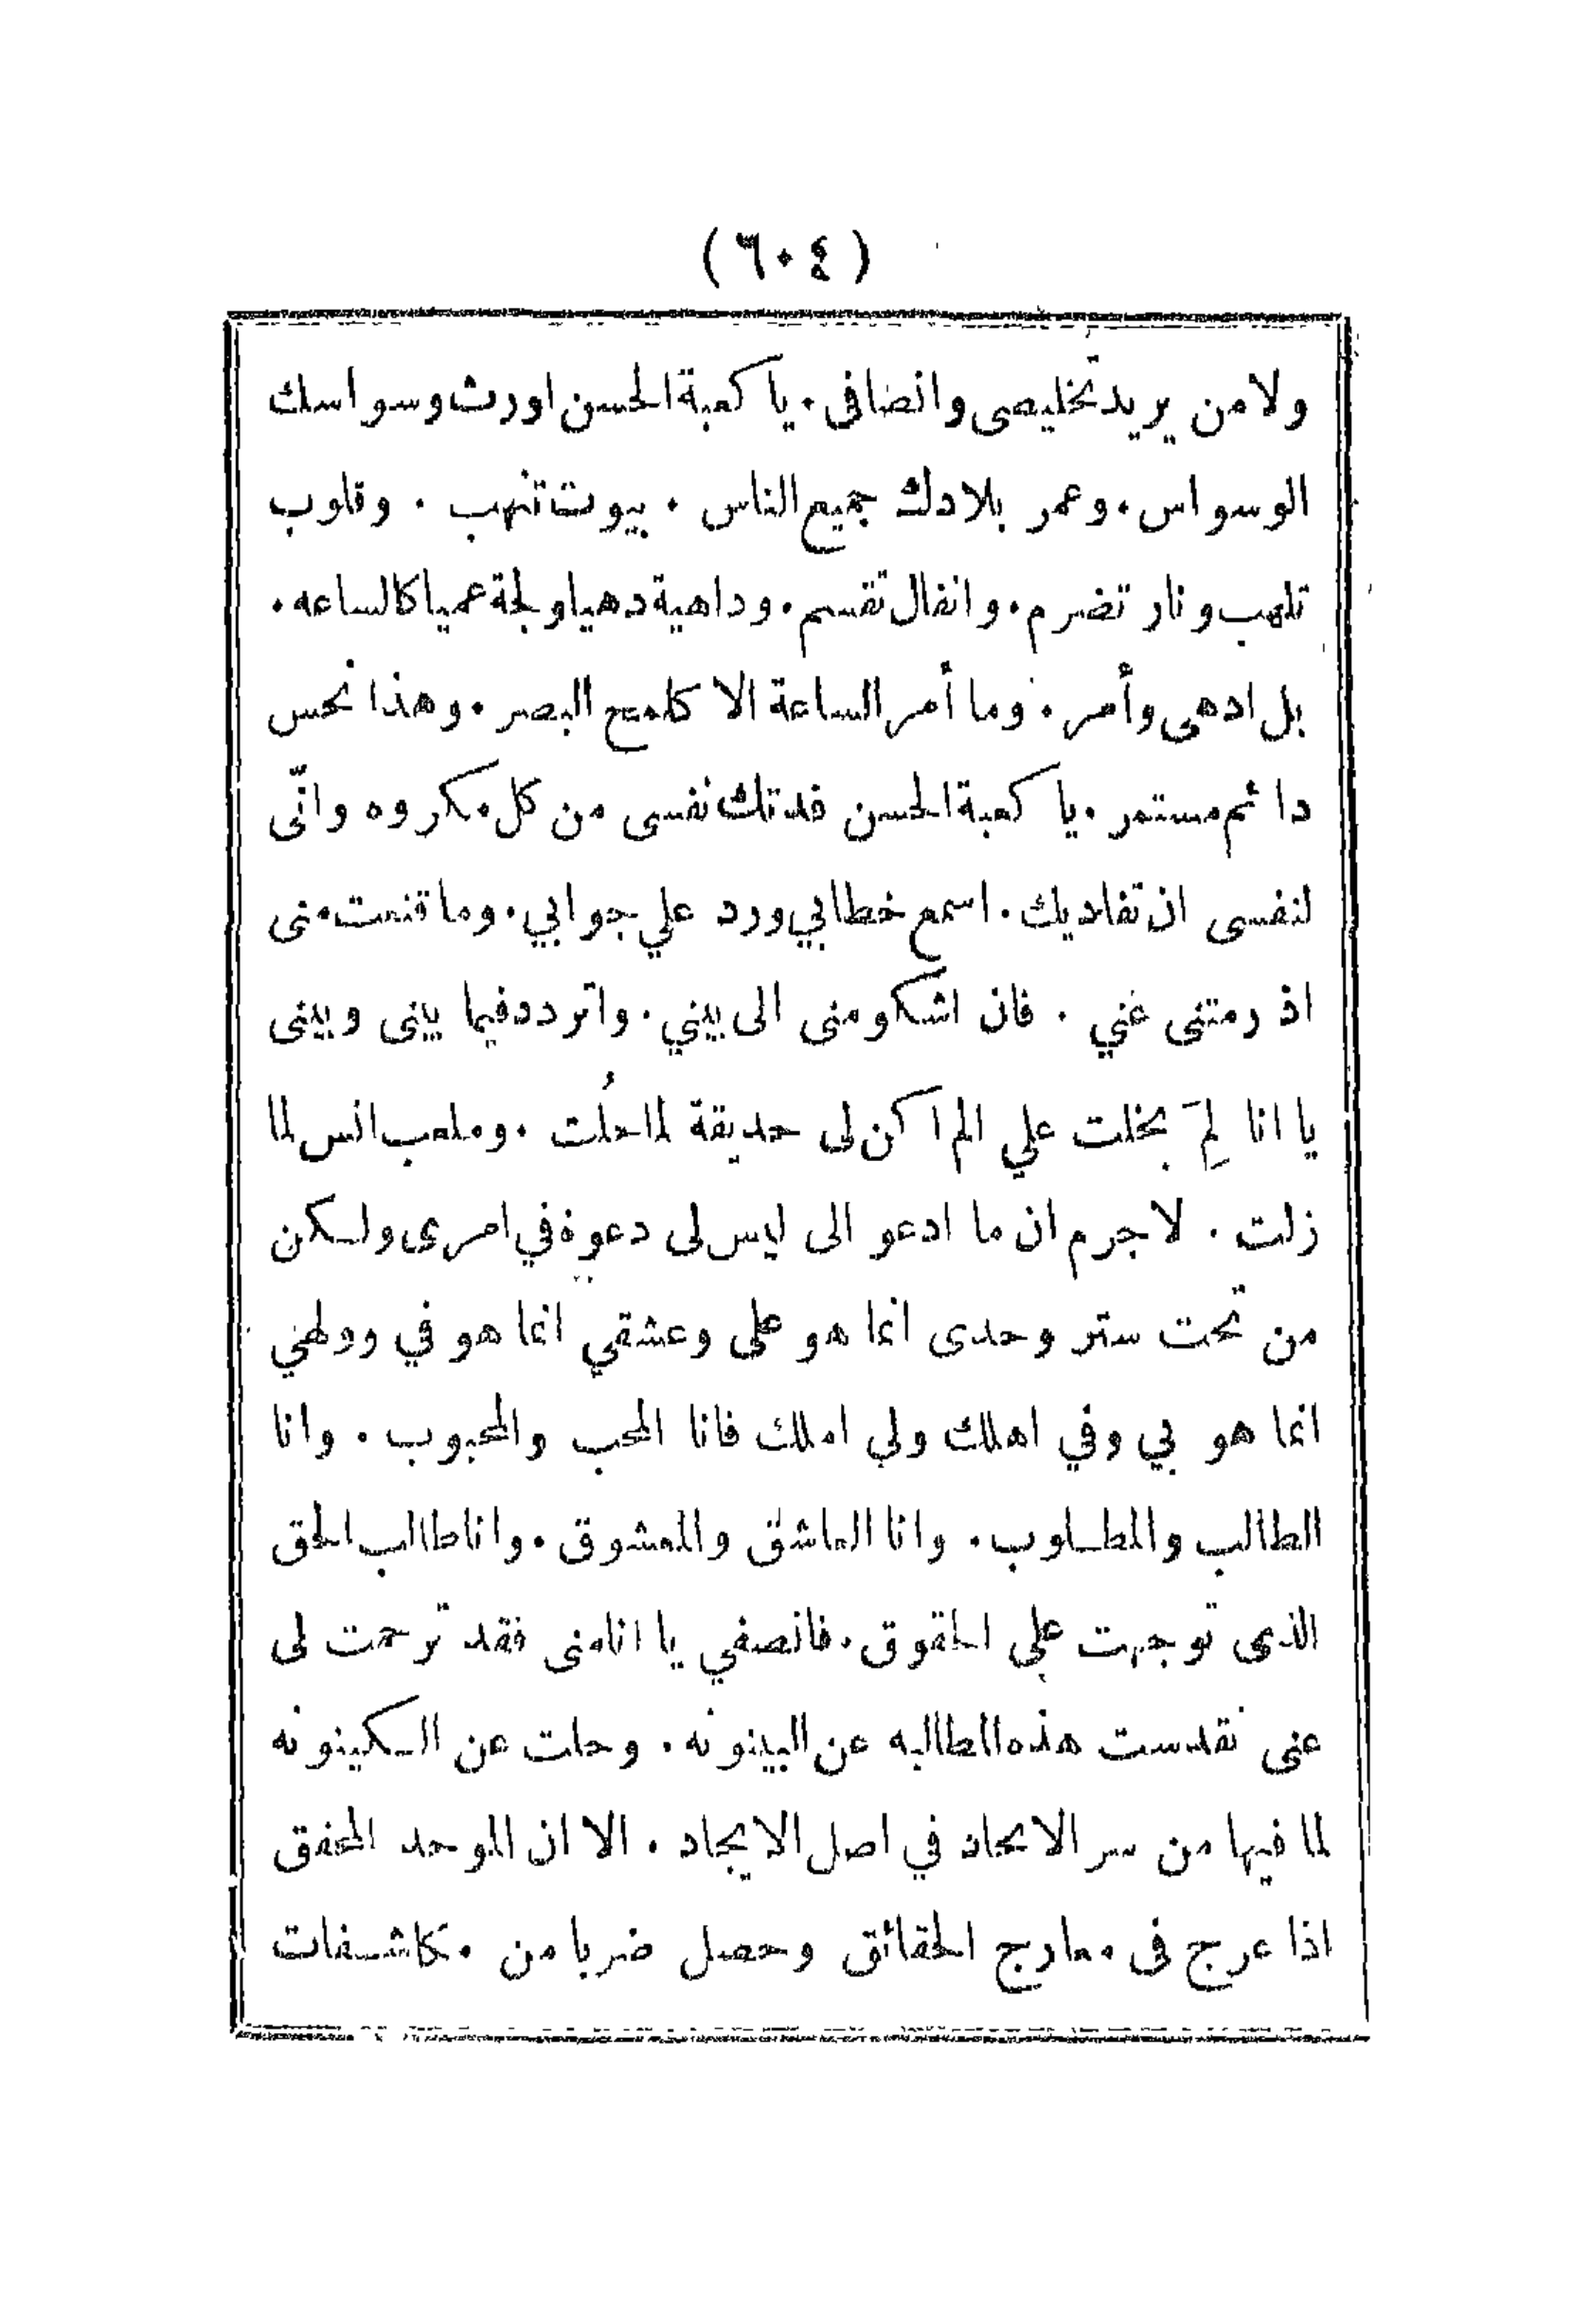 (٦٠٤)
ولا من يريد تخليصى وانضافى . يا كعبة الحسن اورث وسواسك
الوسواس . وعمر بلادك جميع الناس . بيوت تنهب . وقلوب
تلهب ونار تضرم . وانفال تقسم . وداهية دهيا ولجة عميا كالساعه .
بل ادهى وأمر . وما أمر الساعة الا كلمح البصر . وهذا نحس
دائم مستمر . يا كعبة الحسن فدتك نفسى من كل مكروه وانّى
لنفسى ان تفاديك . اسمع خطابي ورد علي جوابي . وما قنعت منى
اذ رمتنى عني . فان اشكو منى الى بيني . واتردد فيما بينى وبينى
يا انا لِمَ بخلت علي الم اكن لى حديقة لما حلُت . وملعب انس لما
زلت . لاجرم ان ما ادعو الى ليس لى دعوة في امرى ولكن
من تحت ستر وحدى انما هو على وعشقي انما هو في وولهي
انما هو بي وفي اهلك ولي املك فانا المحب والمحبوب . وانا
الطالب والمطلوب . وانا العاشق والمعشوق . وانا طالب الحق
الذى توجهت على الحقوق . فانصفي يا انا منى فقد ترحمت لى
عنى تقدست هذه الطالبه عن البينونه . وحلت عن الكينونه
لما فيها من سر الاتحاد في اصل الايجاد . الا ان الموحد المحقق
اذا عرج فى معارج الحقائق وحصل ضربا من مكاشفات